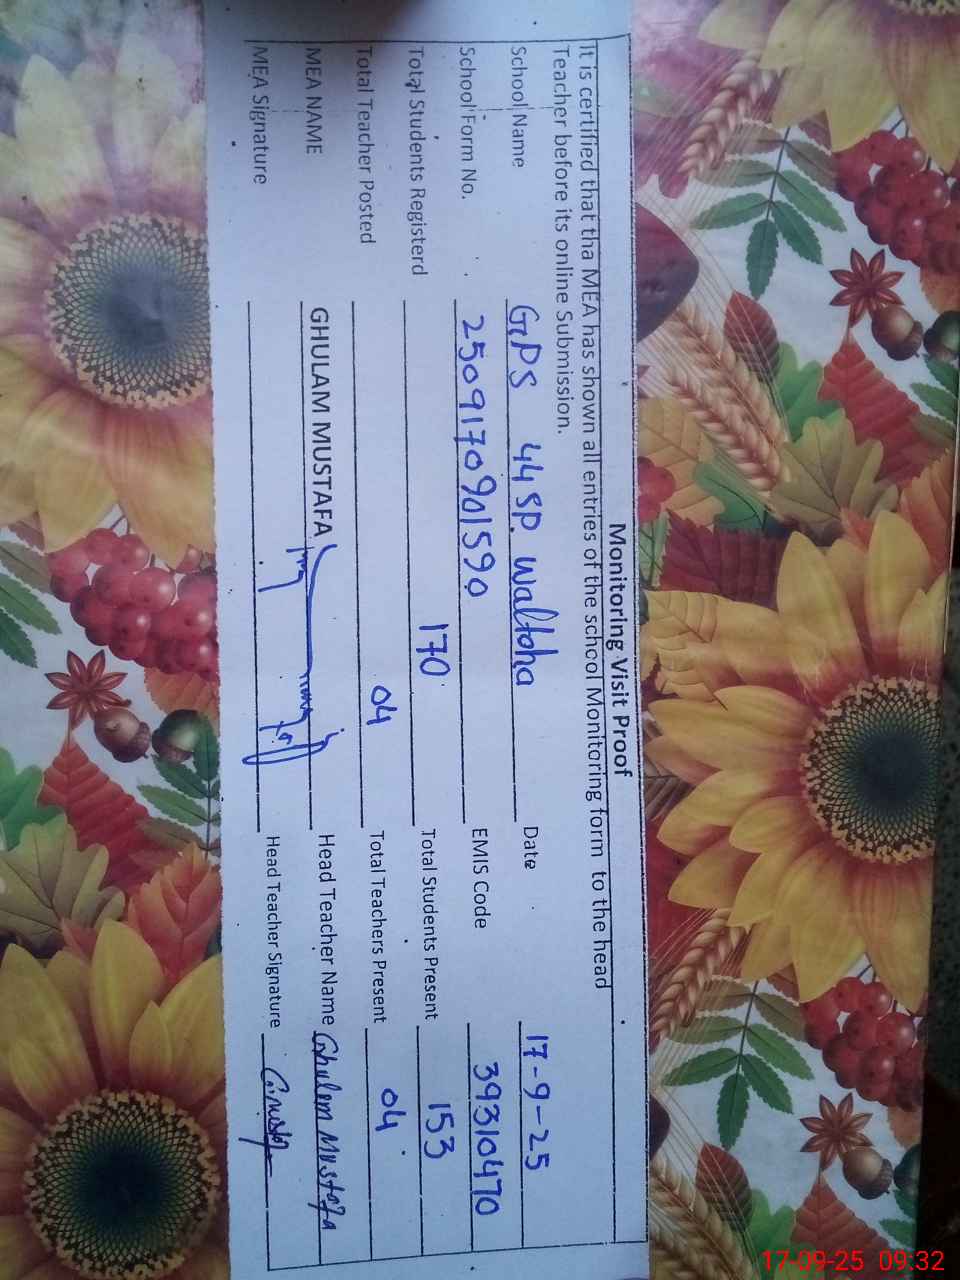 Monitoring Visit Proof
It is certified that tha MEA has shown all entries of the school Monitoring form to the head
Teacher before its online Submission.
School Name GPS 44 SP. Waltoha Date 17-9-25
School Form No. 2509170901590 EMIS Code 39310470
Total Students Registerd 170 Total Students Present 153
Total Teacher Posted 04 Total Teachers Present 04
MEA NAME GHULAM MUSTAFA Head Teacher Name Ghulam Mustafa
MEA Signature Head Teacher Signature
17-09-25 09:32